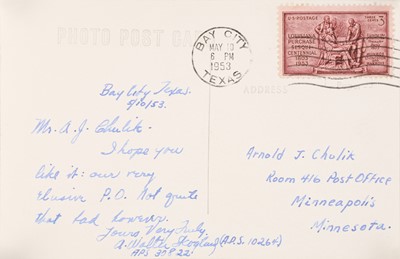 PHOTO POST CARD
BAY CITY
MAY 10
6 PM
1953
TEXAS
U.S. POSTAGE
3
LOUISIANA
PURCHASE
SESQUI-
CENTENNIAL
1803
1953
ADDRESS
Bay City Texas.
5/10/53.
Mr. A. J. Chulik.
I hope you
like it: our very
elusive P.O. Not quite
that bad however.
Yours Very Truly,
A. Walter (A.P.S. 10264)
APS
Arnold J. Chalik
Room 416 Post Office
Minneapolis
Minnesota.